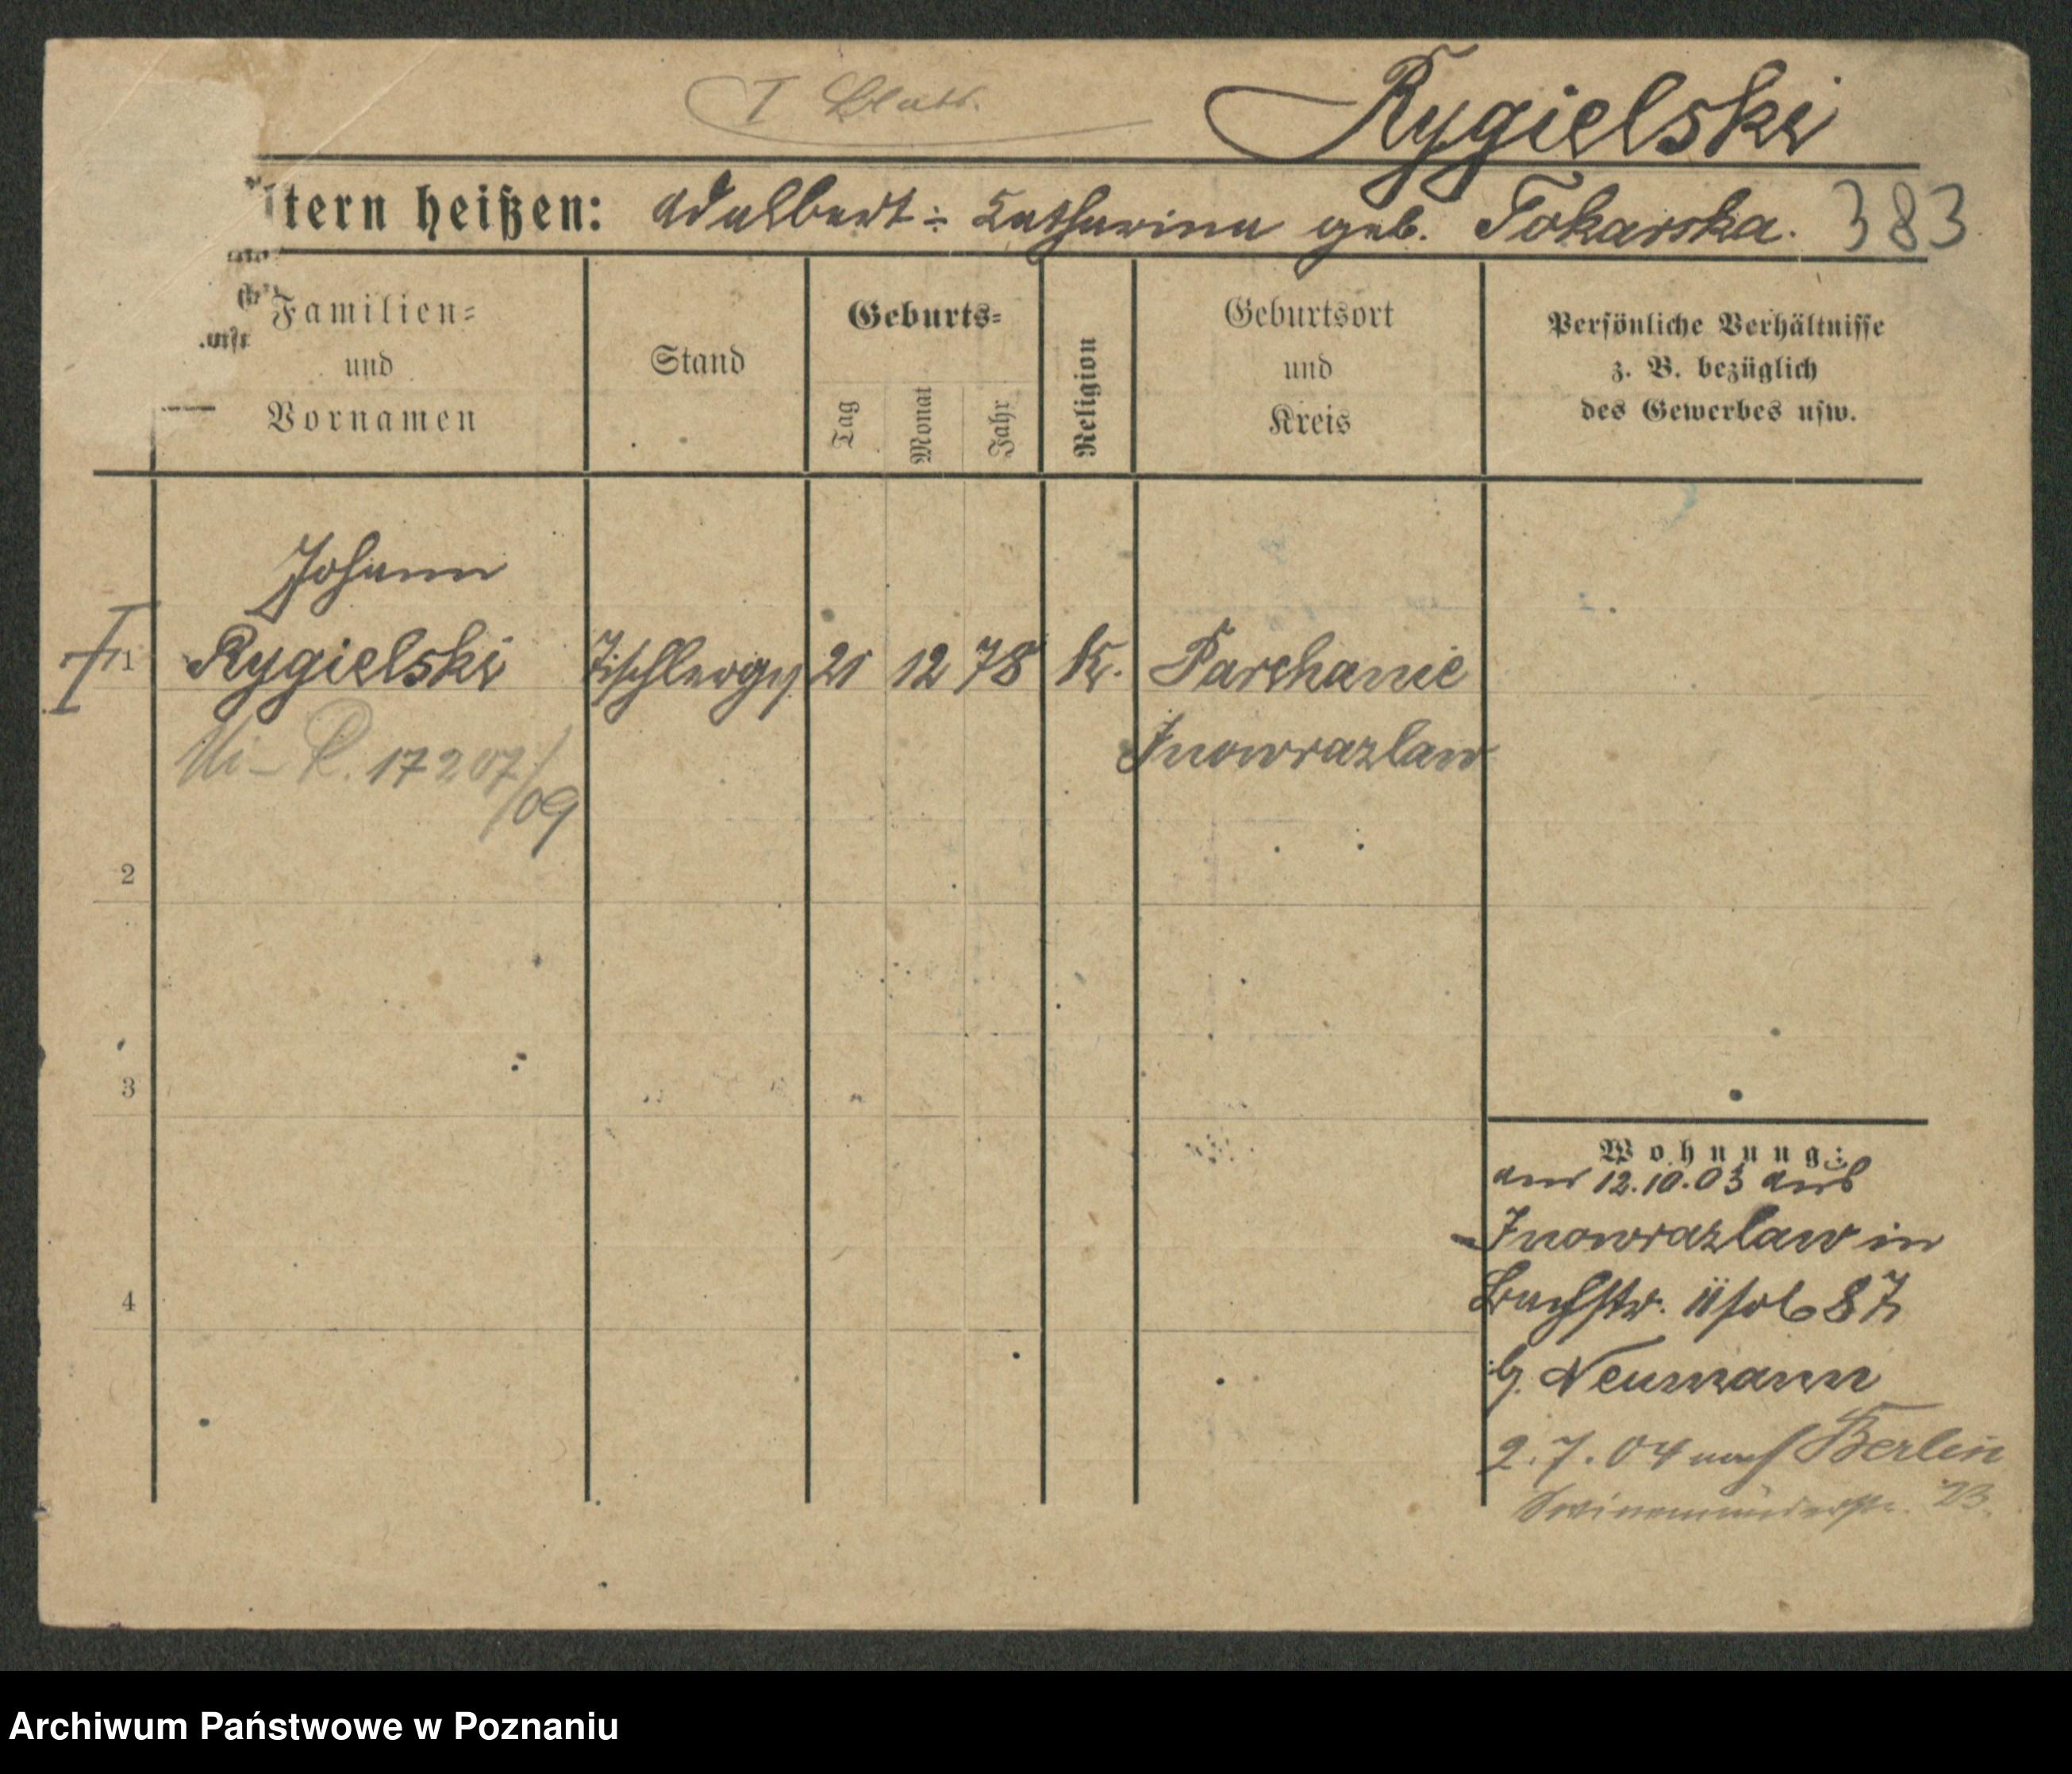 I Blatt.
Rygielski
ltern heißen: Adalbert ÷ Catharina geb. Tokarska. 383
Familien=
und
Vornamen
Stand
Geburts=
Tag
Monat
Jahr
Religion
Geburtsort
und
Kreis
Persönliche Verhältnisse
z. B. bezüglich
des Gewerbes usw.
Johann
1 Rygielski Tischlerges. 21 12 78 K. Parchanie
Inowrazlaw
17207/09
2
3
4
Wohnung:
am 12.10.03 aus
Inowrazlaw in
Bachstr. 87
b. Neumann
2.7.04 nach Berlin
Swinemünderstr. 23.
Archiwum Państwowe w Poznaniu